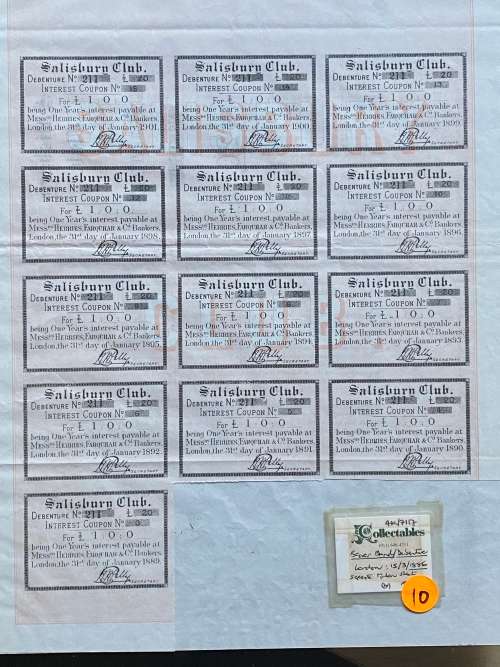 Salisbury Club.
Debenture No. 211 £ 20
Interest Coupon No. 15
For £1:0:0
being One Year's interest payable at
Messrs Herries, Farquhar & Co. Bankers,
London, the 31st day of January 1901.
SECRETARY
Salisbury Club.
Debenture No. 211 £ 20
Interest Coupon No. 14
For £1:0:0
being One Year's interest payable at
Messrs Herries, Farquhar & Co. Bankers,
London, the 31st day of January 1900.
SECRETARY
Salisbury Club.
Debenture No. 211 £ 20
Interest Coupon No. 13
For £1:0:0
being One Year's interest payable at
Messrs Herries, Farquhar & Co. Bankers,
London, the 31st day of January 1899.
SECRETARY
Salisbury Club.
Debenture No. 211 £ 20
Interest Coupon No. 12
For £1:0:0
being One Year's interest payable at
Messrs Herries, Farquhar & Co. Bankers,
London, the 31st day of January 1898.
SECRETARY
Salisbury Club.
Debenture No. 211 £ 20
Interest Coupon No.
For £1:0:0
being One Year's interest payable at
Messrs Herries, Farquhar & Co. Bankers,
London, the 31st day of January 1897.
SECRETARY
Salisbury Club.
Debenture No. 211 £ 20
Interest Coupon No. 10
For £1:0:0
being One Year's interest payable at
Messrs Herries, Farquhar & Co. Bankers,
London, the 31st day of January 1896.
SECRETARY
Salisbury Club.
Debenture No. 211 £ 20
Interest Coupon No. 9
For £1:0:0
being One Year's interest payable at
Messrs Herries, Farquhar & Co. Bankers,
London, the 31st day of January 1895.
SECRETARY
Salisbury Club.
Debenture No. 211 £ 20
Interest Coupon No. 8
For £1:0:0
being One Year's interest payable at
Messrs Herries, Farquhar & Co. Bankers,
London, the 31st day of January 1894.
SECRETARY
Salisbury Club.
Debenture No. 211 £ 20
Interest Coupon No. 7
For £1:0:0
being One Year's interest payable at
Messrs Herries, Farquhar & Co. Bankers,
London, the 31st day of January 1893.
SECRETARY
Salisbury Club.
Debenture No. 211 £ 20
Interest Coupon No. 6
For £1:0:0
being One Year's interest payable at
Messrs Herries, Farquhar & Co. Bankers,
London, the 31st day of January 1892.
SECRETARY
Salisbury Club.
Debenture No. 211 £ 20
Interest Coupon No. 5
For £1:0:0
being One Year's interest payable at
Messrs Herries, Farquhar & Co. Bankers,
London, the 31st day of January 1891.
SECRETARY
Salisbury Club.
Debenture No. 211 £ 20
Interest Coupon No. 4
For £1:0:0
being One Year's interest payable at
Messrs Herries, Farquhar & Co. Bankers,
London, the 31st day of January 1890.
SECRETARY
Salisbury Club.
Debenture No. 211 £ 20
Interest Coupon No. 3
For £1:0:0
being One Year's interest payable at
Messrs Herries, Farquhar & Co. Bankers,
London, the 31st day of January 1889.
SECRETARY
Collectables
London : 15/3/1886
10